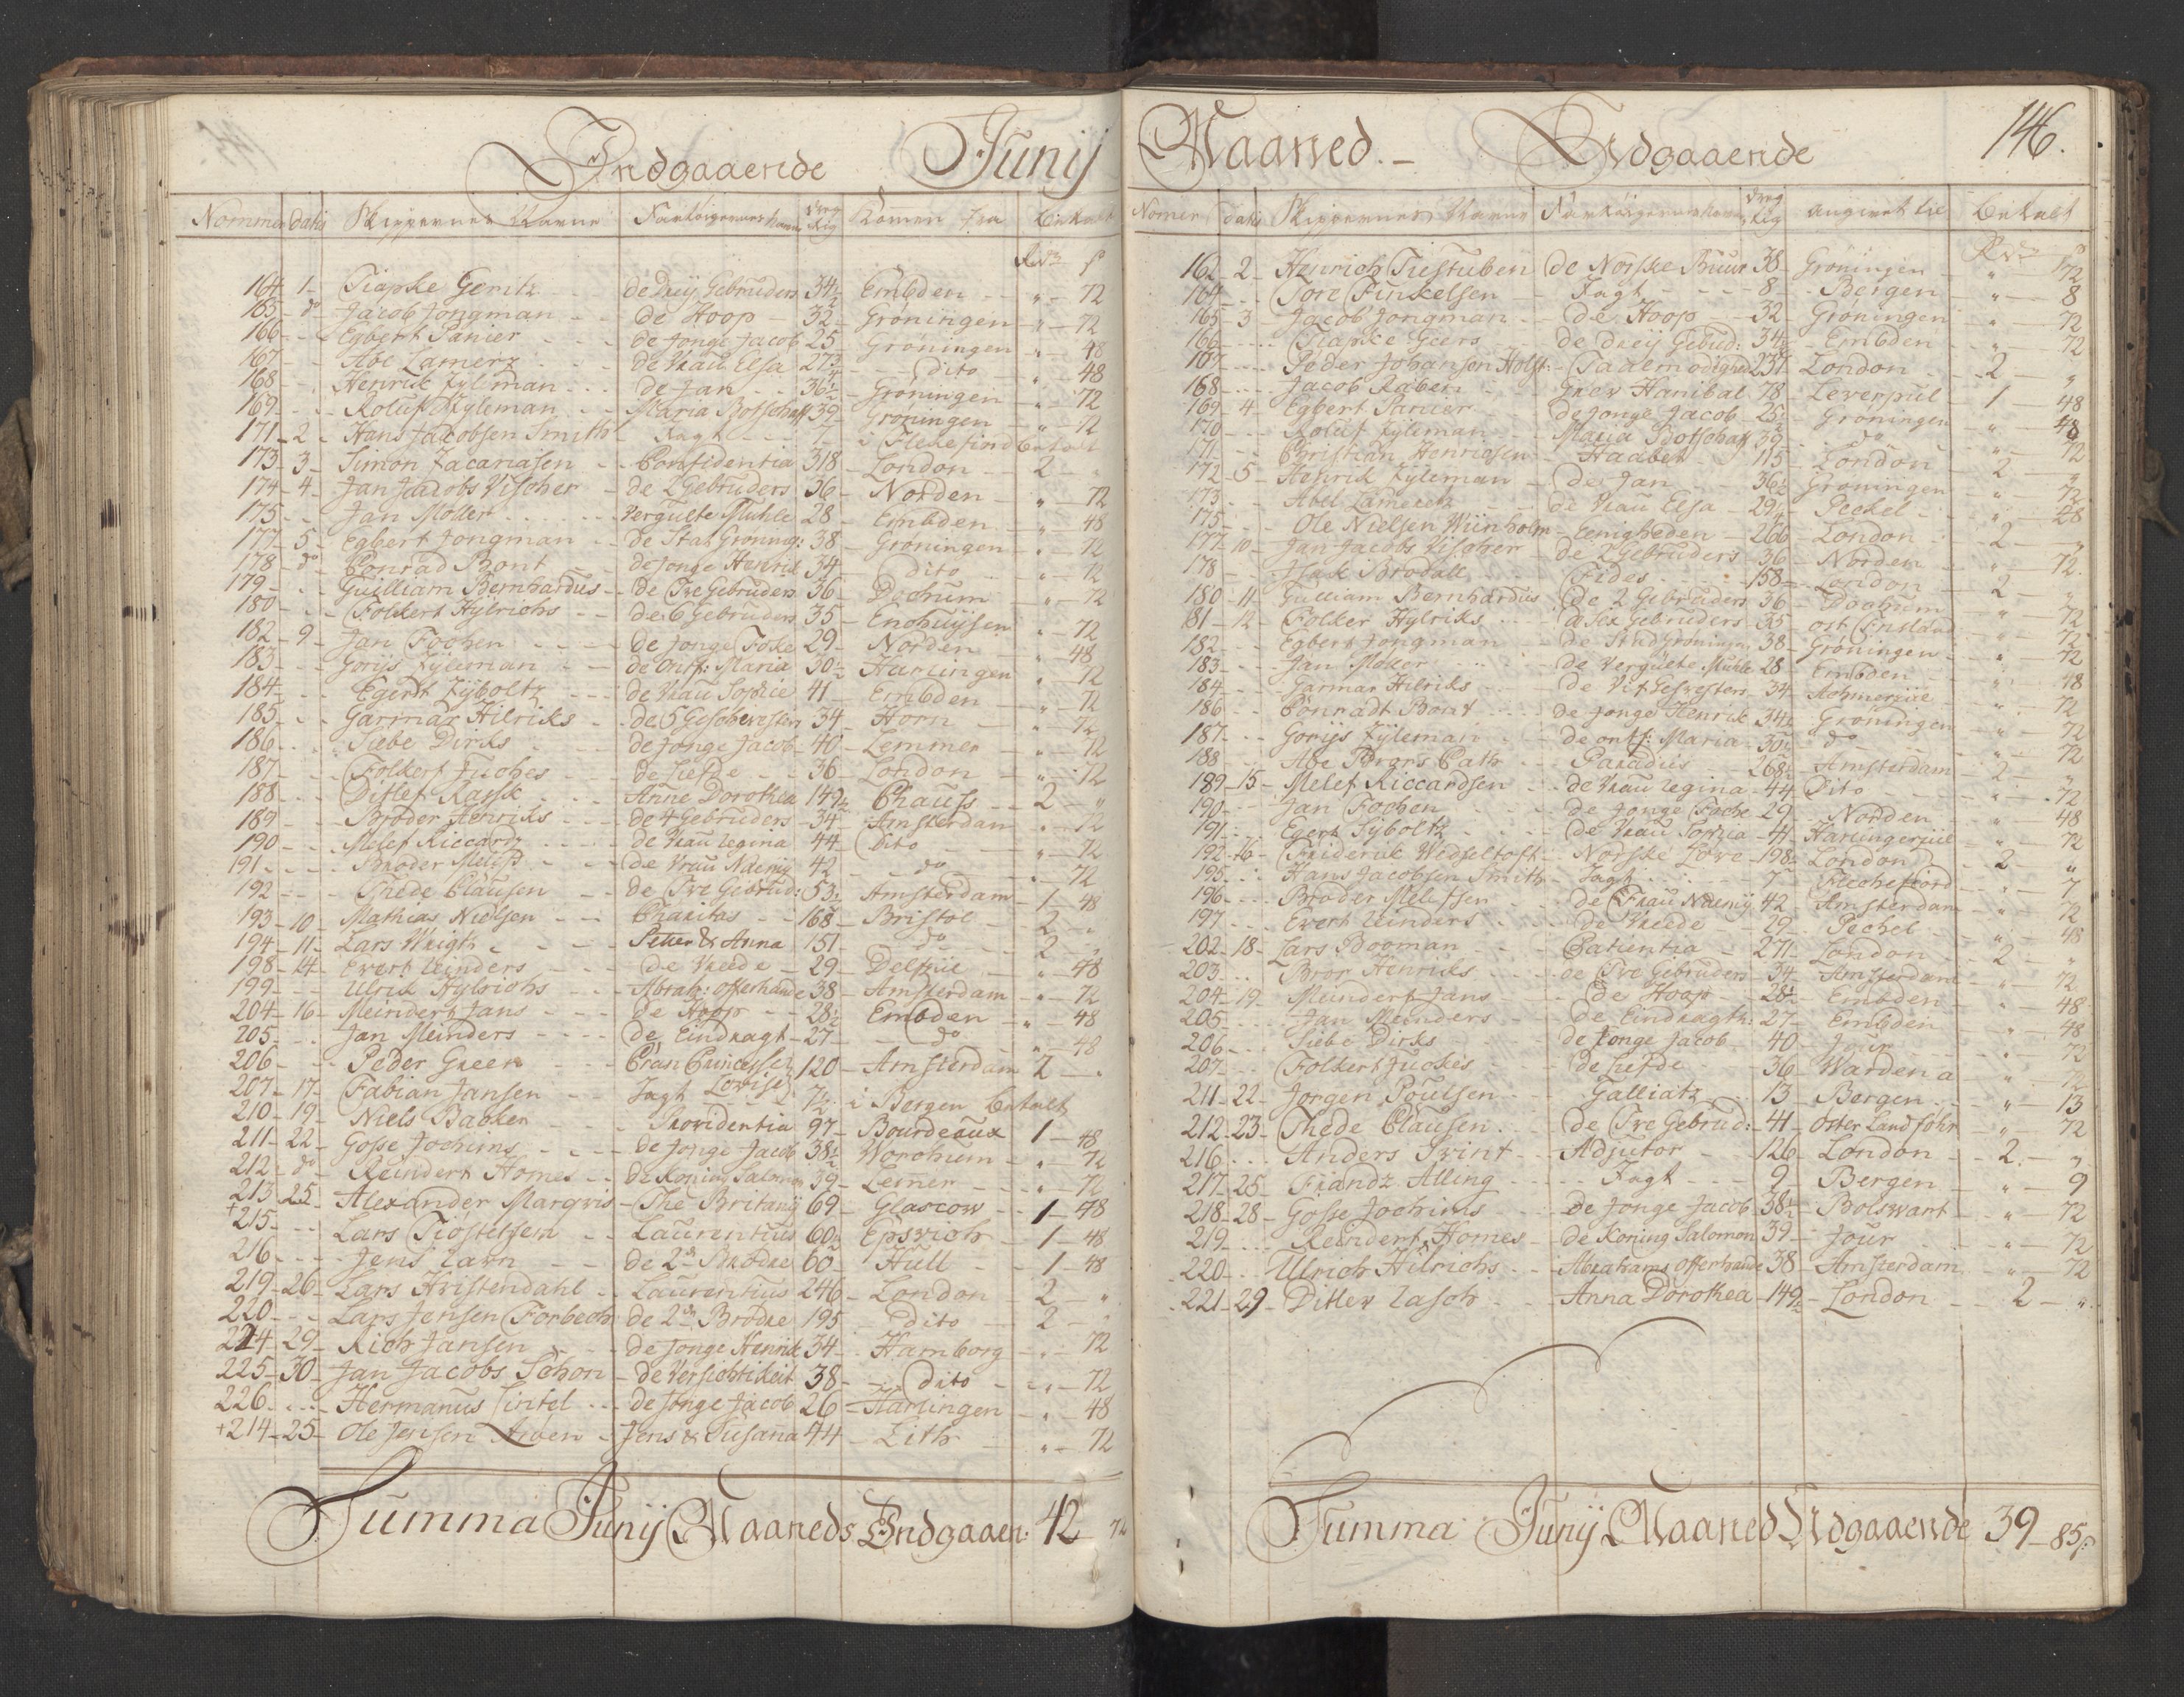 Indgaaende Junij
Nommer datis Skippernes Navne Fartøigernes Navne dreg tig Komen fra betalt
Rdr ß
164 1 Tiapke Gerritz de Dreij Gebruders 34½ Embden " 72
165 do Jacob Jongman de Hoop 32 Groningen " 72
166 Egbert Panier de Jonge Jacob 25 Groningen " 48
167 Abe Lamerz de Vrau Elsa 27¾ dito " 48
168 Henrik Zyleman de Jan 36½ Groningen " 72
169 Roluf Zyleman Maria Botschaff 39 Groningen " 72
171 2 Hans Jacobsen Smith Jagt 7 i Flekefiord betalt
173 3 Simon Zacariasen Confidentia 318 London 2 "
174 4 Jan Jacobs Vischer de 2 Gebruders 36 Norden " 72
175 Jan Moller Vergulte Muhle 28 Embden " 48
177 5 Egbert Jongman de Stat Groning: 38 Groningen " 72
178 do Conrad Bont de Jonge Henrik 34 dito " 72
179 Guilliam Bernhardus De Tre Gebruders 36 Dochum " 72
180 Folkert Hylrichs de 6 Gebruders 35 Enchuijsen " 72
182 9 Jan Fochen de Jonge Focke 29 Norden " 48
183 Gorijs Zijleman de Ontf: Maria 30½ Harlingen " 72
184 Egert Zijboltz de Vrau Sophie 41 Embden " 72
185 Garmar Hilriks de 5 Geschwesters 34 Horn " 72
186 Siebe Dirks de Jonge Jacob 40 Lemmer " 72
187 Folkert Fuches de Liefde 36 London " 72
188 Ditlef Rassk Anne Dorothea 149½ Chauss 2 "
189 Broder Henriks de 4 Gebruders 34 Amsterdam " 72
190 Melef Riccardz de Vrau Regina 44 Dito " 72
191 Broder Melefs de Vrau Naemij 42 do " 72
192 Thede Clausen de Tre Gebrud: 53½ Amsterdam 1 48
193 10 Mathias Nielsen Charitas 168 Bristol 2 "
194 11 Lars Wrigth Petter & Anna 151 do 2 "
198 14 Evert Reinders de Vreede 29 Delfziil " 48
199 Ulrik Hylrichs Abrah: Offerhande 38 Amsterdam " 72
204 16 Meindert Jans de Hoop 28½ Embden " 48
205 Jan Meinders de Eindragt 27 do " 48
206 Peder Green Cron Princesse Lovise 120 Amsterdam 2 "
207 17 Fabian Jansen Jagt 7½ i Bergen betalt
210 19 Niels Backer Providentia 97 Bourdeaux 1 48
211 22 Gosse Jochims de Jonge Jacob 38½ Worchum " 72
212 do Reindert Homes De Koning Salomon 39 Lemer " 72
213 25 Alexander Marqvis The Britanij 69 Glascow 1 48
+215 Lars Tiostelsen Laurentius 60½ Epswich 1 48
216 Jens Larn de 2de Brødre 60 Hull 1 48
219 26 Lars Kristendahl Laurentius 246 London 2 "
220 Lars Jensen Forbech de 2de Brødre 195 Dito 2 "
224 29 Rich Jansen de Jonge Henrik 34 Hamborg " 72
225 30 Jan Jacobs Schon de Versichtikeit 38 Dito " 72
226 Hermanus Sintel de Jonge Jacob 26 Harlingen " 48
+214 25 Ole Jensen Aroen Jens & Susana 44 Lith " 72
Summa Junij Maaneds Indgaaen: 42 72
Maaned. Udgaaende 146.
Nomer datis Skippernes Navne Fartøigernes Navne dreg tig angivet til betalt
Rdr ß
162 2 Henrich Tiestuben de Norske Buur 38 Groningen " 72
164 Tore Finkelsen Jagt 8 Bergen " 8
165 3 Jacob Jongman de Hoop 32 Groningen " 72
166 Tiapke Geers de dreij Gebrud: 34½ Embden " 72
167 Peder Johansen Holst Taalmodighed 237 London 2 "
168 Jacob Raben Grev Hanibal 78 Leverpul 1 48
169 4 Egbert Panier de Jonge Jacob 25 Groningen " 48
170 Roluf Zyleman Maria Botschaff 39 do " 72
171 Christian Henriksen Haabet 115 London 2 "
172 5 Henrik Zyleman de Jan 36½ Groningen " 72
173 Abel Lamertz de Vrau Elsa 29¼ Peckel " 28
175 Ole Nielsen Wiinholm Eenigheden 266 London 2 "
177 10 Jan Jacobs Vischer de 2 Gebruders 36 Norden " 72
178 Isaak Brodall Fides 158 London 2 "
180 11 Gulliam Bernhardus De 2 Gebruders 36 Dochum " 72
181 12 Folker Hylriks de Sex Gebruders 35 ost Ensland " 72
182 Egbert Jongman de Stad Groningen 38 Groningen " 72
183 Jan Moller de Vergulte Muhle 28 Embden " 48
184 Garmar Hilriks de Vif Gesvesters 34 Rohmerziil " 72
186 Conradt Bont de Jonge Henrik 34½ Groningen " 72
187 Gorijs Zijleman de ontf: Maria 30½ do " 72
188 Abe Brors Cath Paradiis 268½ Amsterdam 2 "
189 15 Melef Riccardsen de Vrau Regina 44 Dito " 72
190 Jan Fochen de Jonge Focke 29 Norden " 48
191 Egert Sijboltz de Vrau Sophia 41 Harlingerziil " 72
192 16 Friderik Wedseltoft Norske Løve 198½ London 2 "
195 Hans Jacobsen Smith Jagt 7 Flechefiord " 7
196 Broder Melefsen de Frau Naemij 42 Amsterdam " 72
197 Evert Reinders de Vreede 29 Pechel " 48
202 18 Lars Booman Patientia 271 London 2 "
203 Bror Henriks de Tre Gebruders 34 Amsterdam " 72
204 19 Meindert Jans de Hoop 28½ Embden " 48
205 Jan Meinders de Eindragth: 27 Embden " 48
206 Siebe Dirks de Jonge Jacob 40 Jour " 72
207 Folkert Fuckes de Liefde 36 Warden a " 72
211 22 Jorgen Poulsen Galliatz 13 Bergen " 13
212 23 Thede Clausen de Tre Gebrud: 41 Oster Land föhr " 72
216 Anders Svint Adjutor 126 London 2 "
217 25 Fiandz Alling Jagt 9 Bergen " 9
218 28 Gosse Jochims De Jonge Jacob 38½ Bolswart " 72
219 Reindert Homes de Koning Salomon 39 Jour " 72
220 Ulrich Hilrichs Abrahams Offerhande 38 Amsterdam " 72
221 29 Ditlev Rasch Anna Dorothea 149½ London 2 "
Summa Junij Maaned Udgaaende 39 85ß